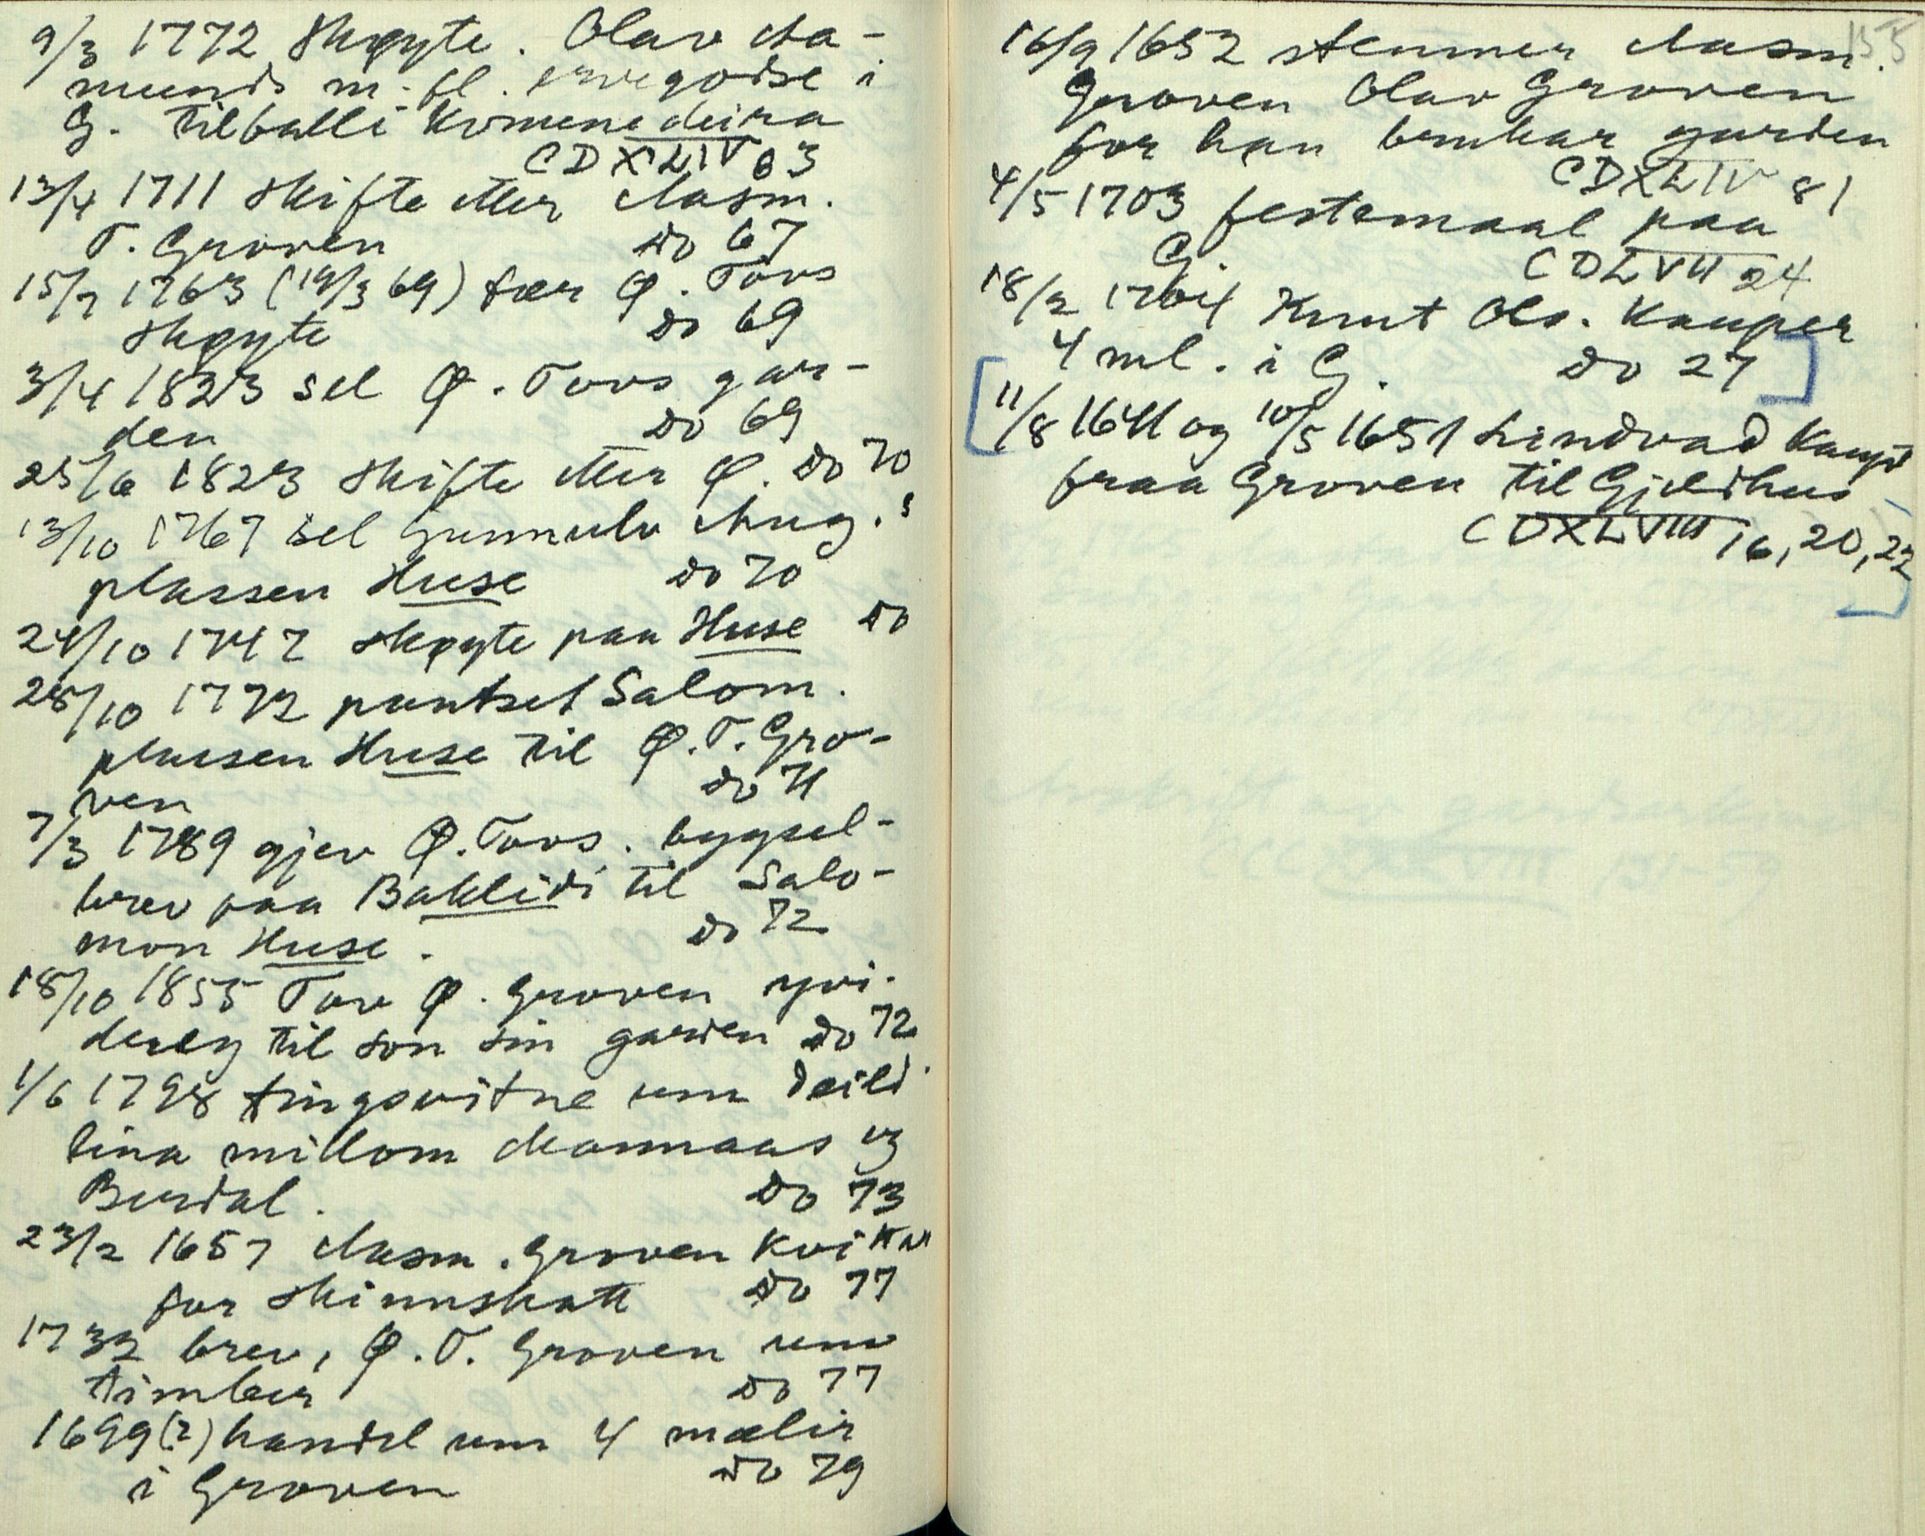 9/3 1772 Skøyte. Olav Aa-
munds m. fl. ervegodse i
G. tilballi kvmene deira
CDXLIV 63
13/4 1711 Skifte etter Aasm.
T. Groven Do 67
15/7 1763 (19/3 69) fær Ø. Tovs
Skøyte Do 69
3/4 1823 sel Ø. Tovs gar-
den Do 69
25/6 1823 Skifte etter Ø. Do 70
13/10 1767 sel Gunnulv Aug.s
plassen Huse Do 70
24/10 1747 skøyte paa Huse Do
28/10 1772 pantset Salom.
plassen Huse til Ø. T. Gro-
ven Do 71
7/3 1789 gjev Ø. Tovs. bygsel-
brev paa Baklidi til Salo-
mon Huse. Do 72
18/10 1855 Tov Ø. Groven yvi-
dreg til son sin garden Do 72
1/6 1798 tingsvitne um deild
lina millom Mannaas og
Burdal. Do 73
23/2 1657 Aasm. Groven kvittar
for Skinnskatt Do 77
1732 brev, Ø. T. Groven um
timber Do 77
1699(?) handel um 4 mælir
i Groven Do 79
16/9 1652 stemner Aasm.
Groven Olav Groven
for han brukar garden
CDXLIV 81
4/5 1703 festemaal paa
G. CDLVII 24
18/2 Knut Olo. Kauper
4 ml. i G. Do 27
11/8 1641 og 10/5 1651 Lindvad Kaupt
fraa Groven til Gjeldhus
CDXLVIII 16, 20, 22
155